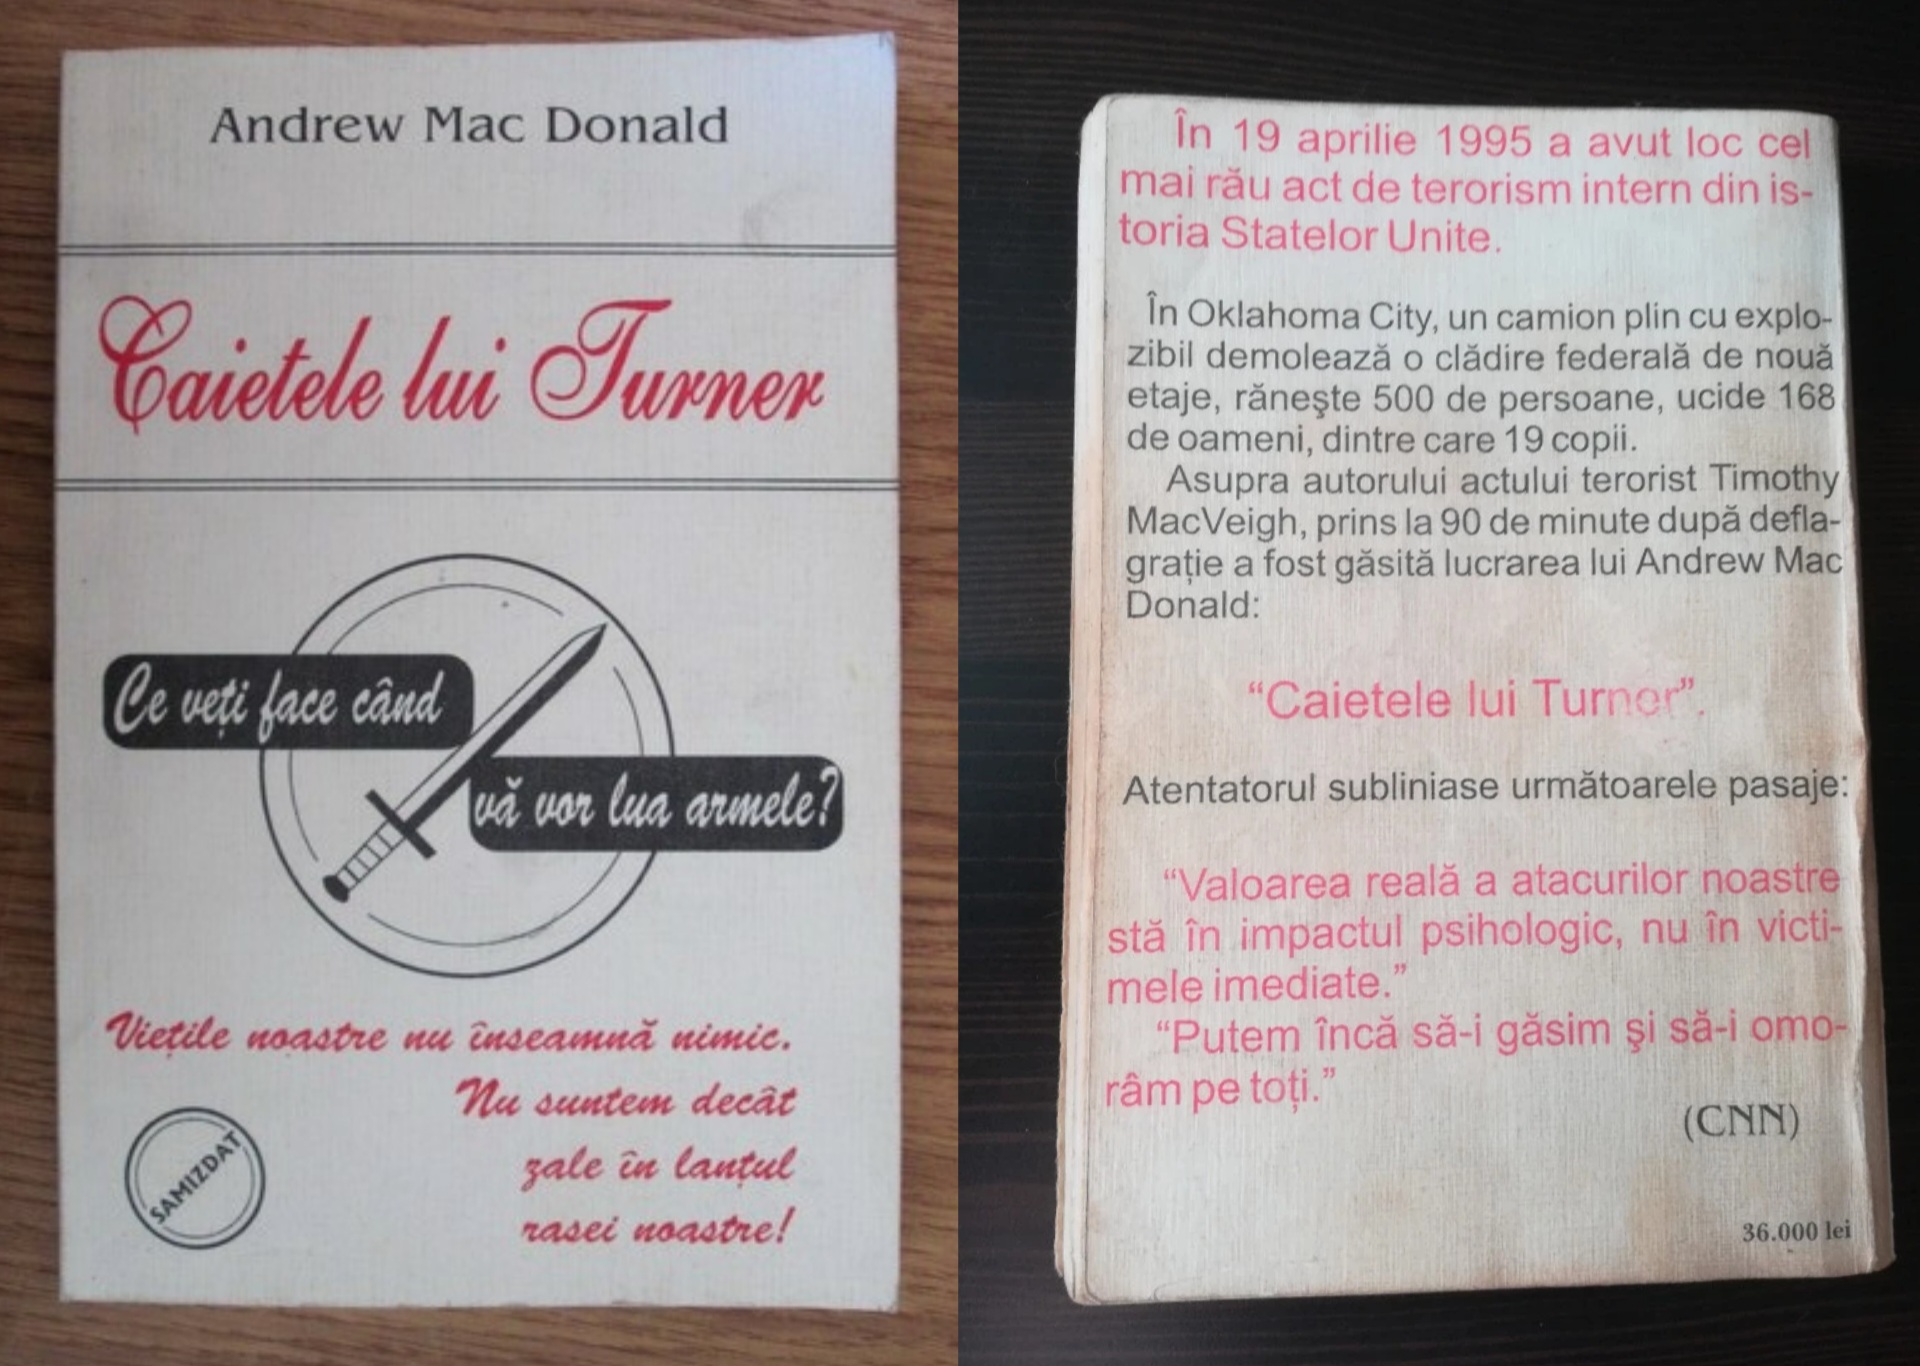 Andrew Mac Donald
Caietele lui Turner
Ce veți face când
vă vor lua armele?
Viețile noastre nu înseamnă nimic.
Nu suntem decât
zale în lanțul
rasei noastre!
SAMIZDAT
În 19 aprilie 1995 a avut loc cel
mai rău act de terorism intern din is-
toria Statelor Unite.
În Oklahoma City, un camion plin cu explo-
zibil demolează o clădire federală de nouă
etaje, rănește 500 de persoane, ucide 168
de oameni, dintre care 19 copii.
Asupra autorului actului terorist Timothy
MacVeigh, prins la 90 de minute după defla-
grație a fost găsită lucrarea lui Andrew Mac
Donald:
“Caietele lui Turner”.
Atentatorul subliniase următoarele pasaje:
“Valoarea reală a atacurilor noastre
stă în impactul psihologic, nu în victi-
mele imediate.”
“Putem încă să-i găsim și să-i omo-
râm pe toți.”
(CNN)
36.000 lei